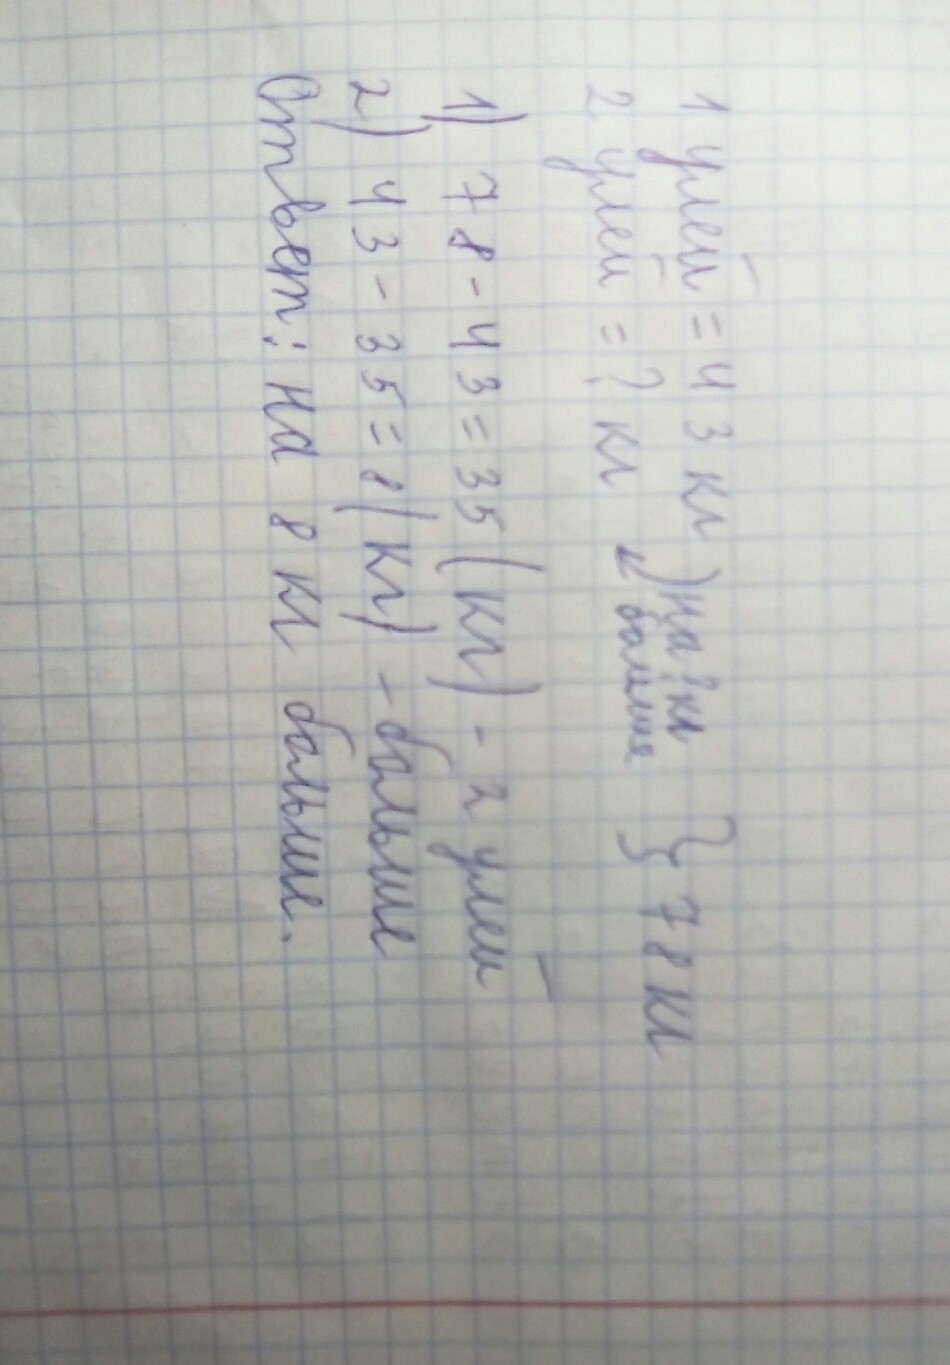 1 улей = 43 кг
на ? кг
больше
} 78 кг
2 улей = ? кг
1) 78 - 43 = 35 (кг) - 2 улей
2) 43 - 35 = 8 (кг) - больше
Ответ: на 8 кг больше.